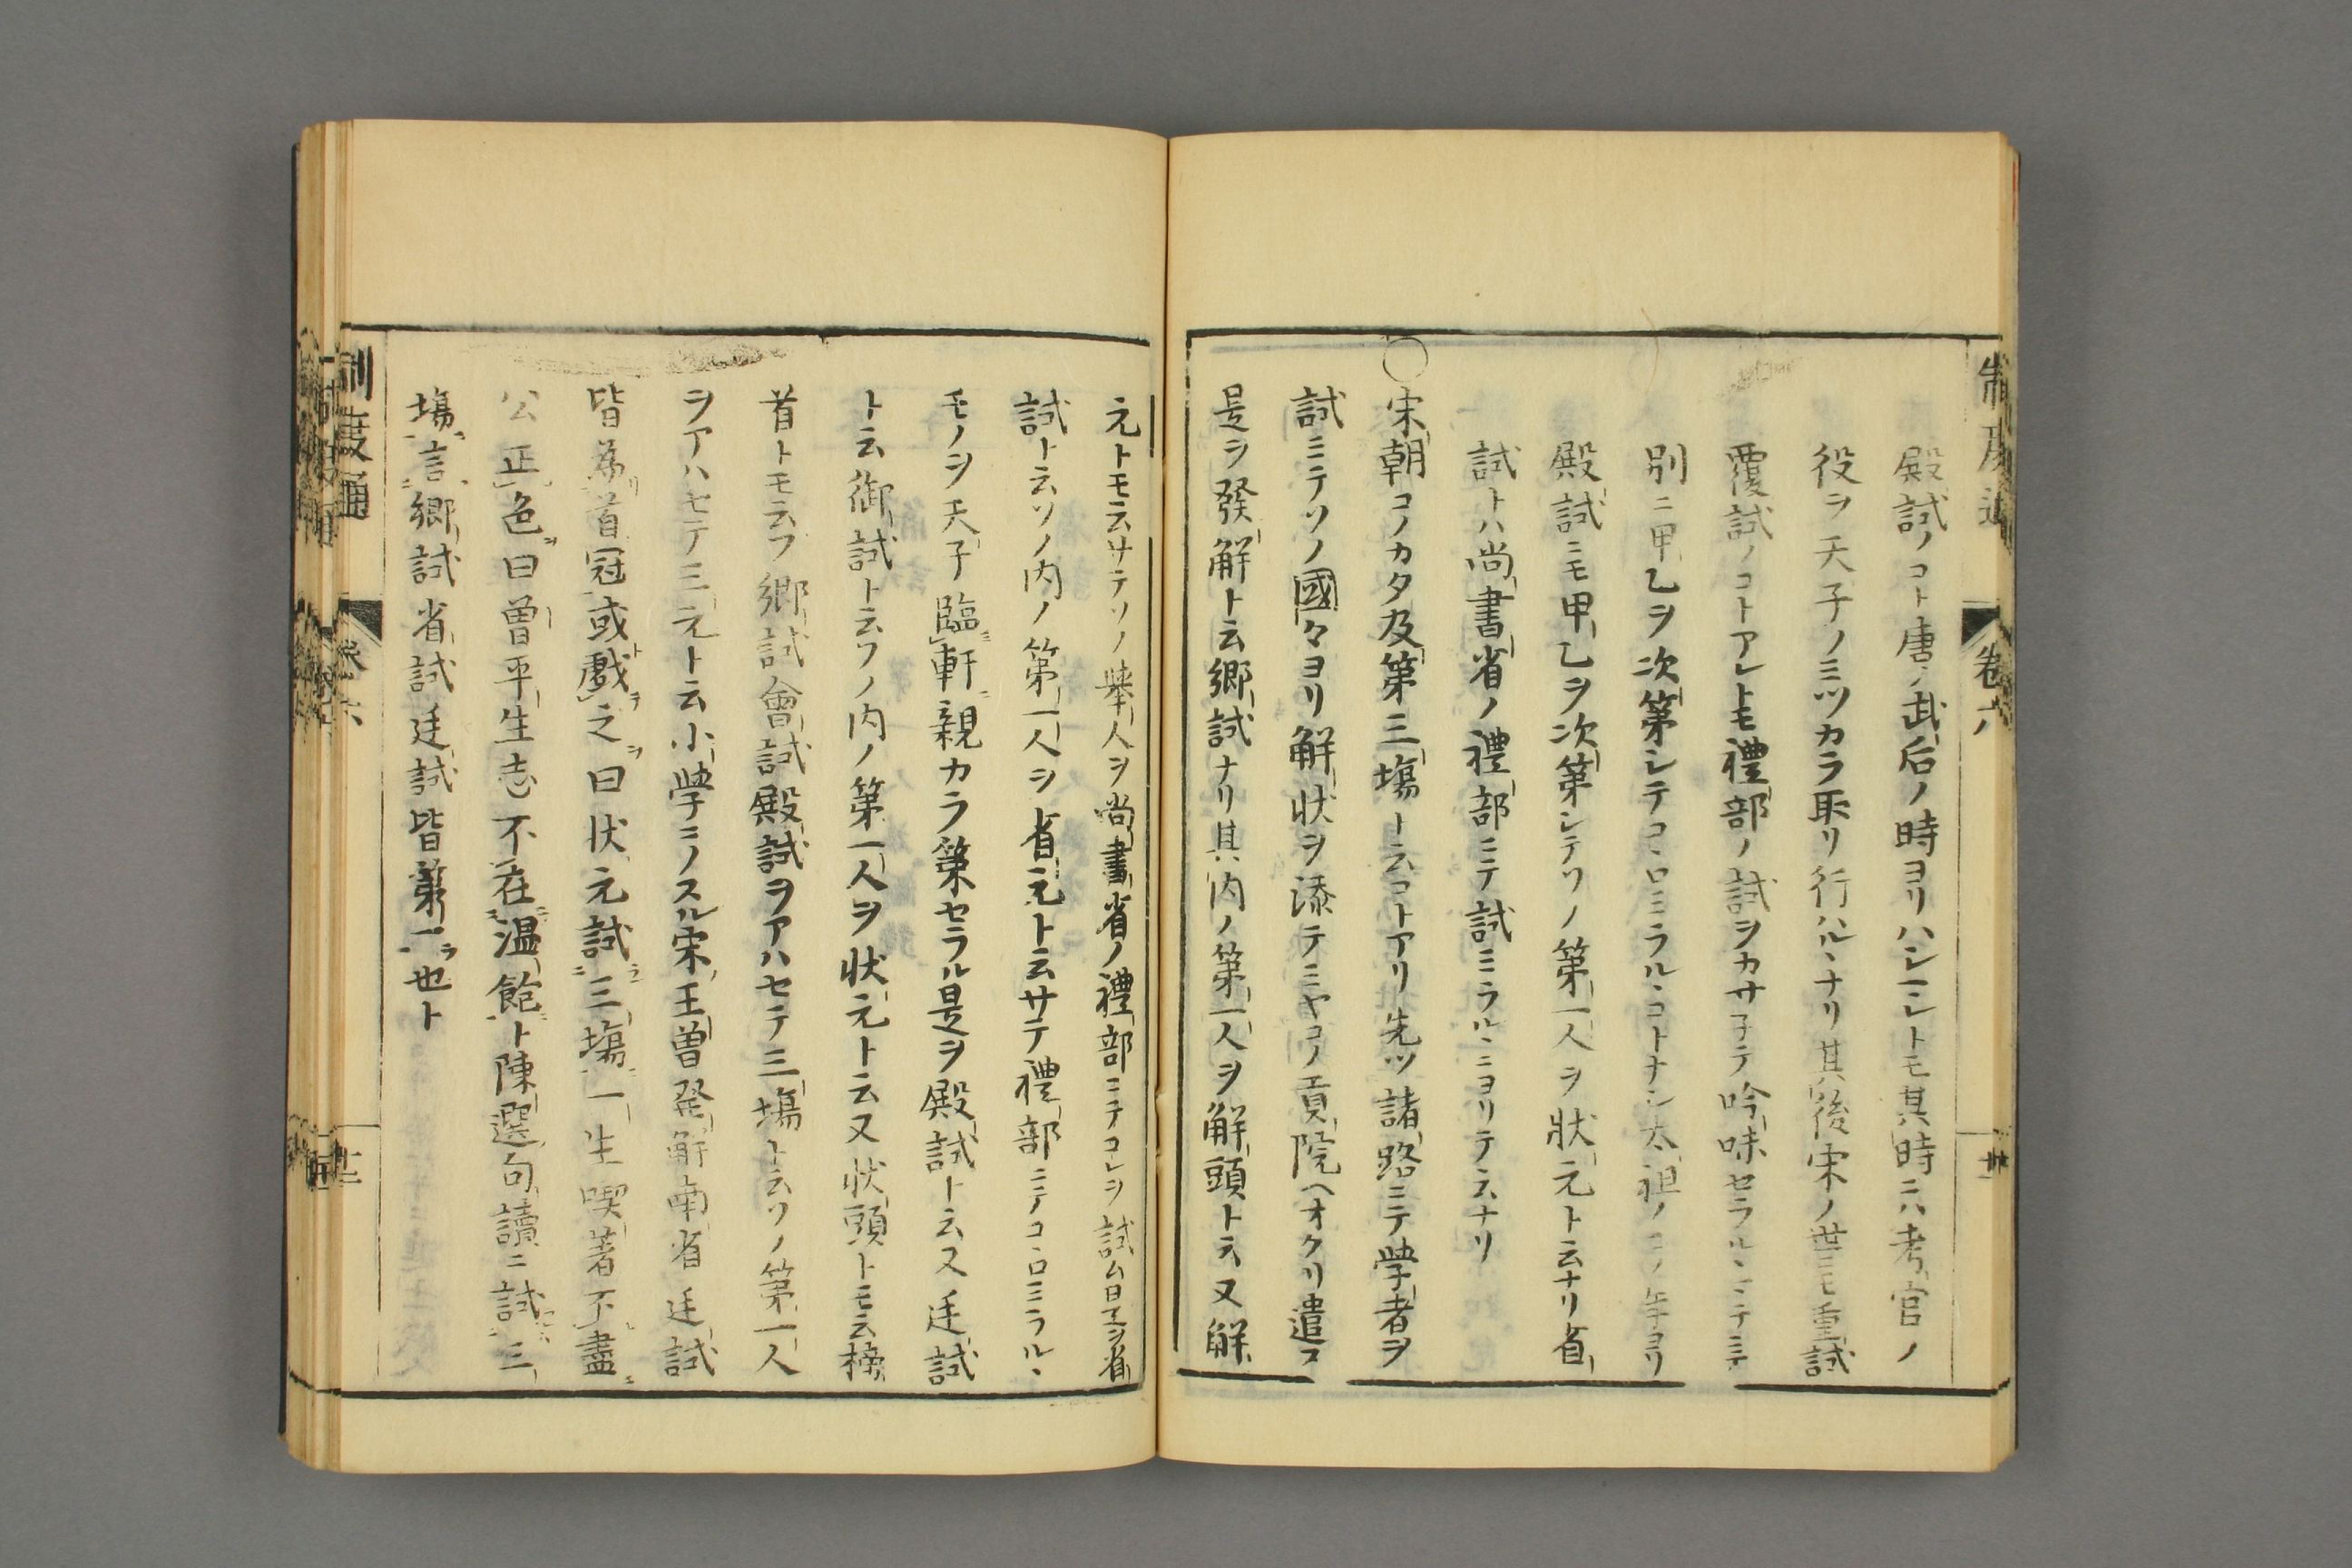 殿試ノコト唐ノ武后ノ時ヨリハシマレトモ其時ニハ考官ノ
役ヲ天子ノミツカラ取リ行ハルヽナリ其後宋ノ世ニモ重試
覆試ノコトアレトモ禮部ノ試ヲカサ子テ吟味セラルヽニテ
別ニ甲乙ヲ次第シテコヽロミラルヽコトナシ太祖ノ年ヨリ
殿試ニモ甲乙ヲ次第シテソノ第一人ヲ狀元ト云ナリ省
試トハ尚書省ノ禮部ニテ試ミラルヽニヨリテ云ナリ
○宋朝コノカタ及第三塲ト云コトアリ先ツ諸路ニテ學者ヲ
試ミテソノ國々ヨリ解狀ヲ添テミヤコノ貢院ヘオクリ遣ス
是ヲ發解ト云鄉試ナリ其内ノ第一人ヲ解頭ト云又解
元トモ云サテソノ舉人ヲ尚書省ノ禮部ニテコレヲ試ム是ヲ省
試ト云ソノ内ノ第一人ヲ省元ト云サテ禮部ニテコヽロミラルヽ
モノヲ天子臨軒親カラ策セラル是ヲ殿試ト云又廷試
ト云御試ト云ソノ内ノ第一人ヲ狀元ト云又狀頭トモ云榜
首トモ云フ鄉試會試殿試ヲアハセテ三塲ト云ソノ第一人
ヲアハセテ三元ト云小學ニノスル宋王曽發解南省廷試
皆爲首冠或戲之曰狀元試三塲一生喫著不盡
公正色曰曽平生志不在温飽ト陳選句讀ニ試三
塲言鄉試省試廷試皆第一也ト
制度通
卷六